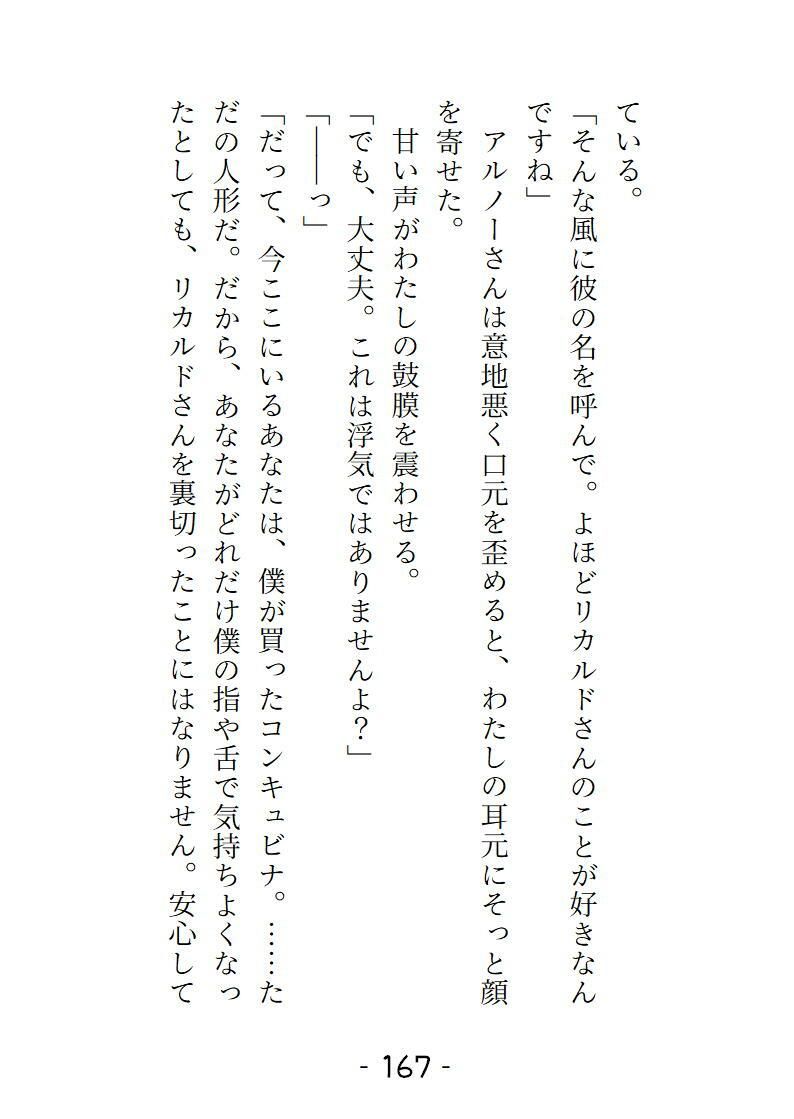 ている。
「そんな風に彼の名を呼んで。よほどリカルドさんのことが好きなん
ですね」
　アルノーさんは意地悪く口元を歪めると、わたしの耳元にそっと顔
を寄せた。
　甘い声がわたしの鼓膜を震わせる。
「でも、大丈夫。これは浮気ではありませんよ？」
「――っ」
「だって、今ここにいるあなたは、僕が買ったコンキュビナ。……た
だの人形だ。だから、あなたがどれだけ僕の指や舌で気持ちよくなっ
たとしても、リカルドさんを裏切ったことにはなりません。安心して
- 167 -